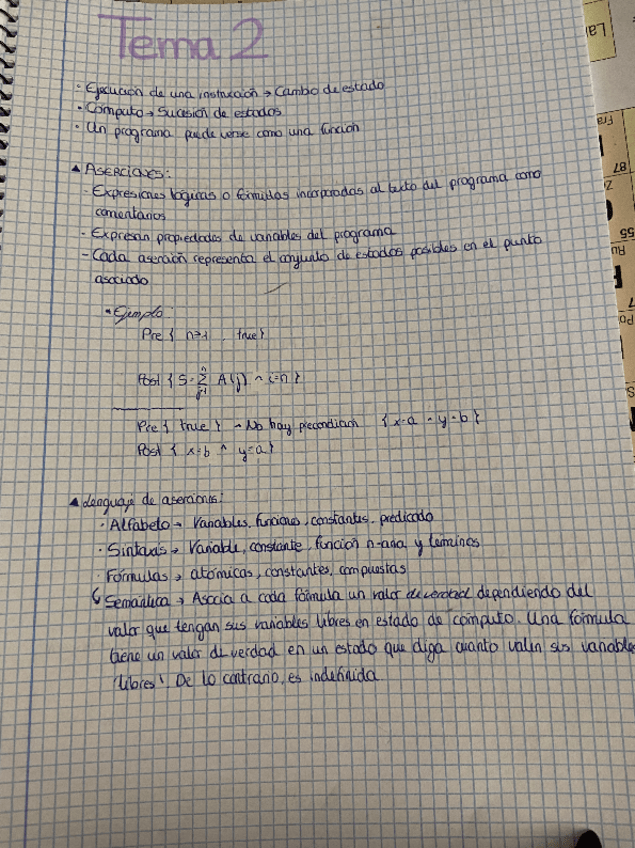 Tema 2
· Ejecución de una instrucción → Cambio de estado
· Cómputo → Sucesión de estados
· Un programa puede verse como una función
▲ ASERCIONES:
- Expresiones lógicas o fórmulas incorporadas al texto del programa como
comentarios
- Expresan propiedades de variables del programa
- Cada aserción representa el conjunto de estados posibles en el punto
asociado
• Ejemplo:
Pre { n≥1 , true }
Post { S = n Σ j=1 A(j) ^ i=n }
Pre { true } → No hay precondición { x=a ^ y=b }
Post { x=b ^ y=a }
▲ Lenguaje de aserciones:
· Alfabeto → Variables, funciones, constantes, predicado
· Sintaxis → Variable, constante, función n-aria y términos
· Fórmulas → atómicas, constantes, compuestas
Semántica → Asocia a cada fórmula un valor de verdad dependiendo del
valor que tengan sus variables libres en estado de cómputo. Una fórmula
tiene un valor de verdad en un estado que diga cuanto valen sus variables
libres. De lo contrario, es indefinida
La
Fra
87
Z
55
Au
7
Po
S